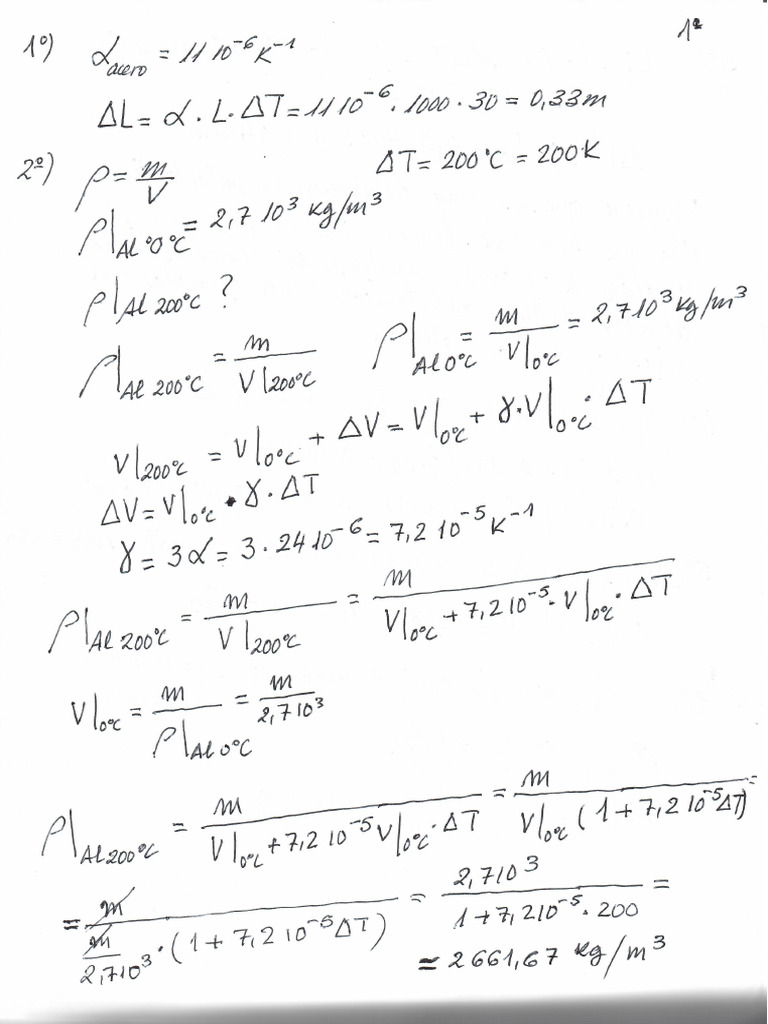 1º) α_acero = 11 10⁻⁶ K⁻¹
1ª
ΔL = α . L . ΔT = 11 10⁻⁶ . 1000 . 30 = 0,33 m
2º) ρ = m/V ΔT = 200 °C = 200 K
ρ|Al 0°C = 2,7 10³ kg/m³
ρ|Al 200°C ?
ρ|Al 200°C = m / V|200°C ρ|Al 0°C = m / V|0°C = 2,7 10³ kg/m³
V|200°C = V|0°C + ΔV = V|0°C + γ . V|0°C . ΔT
ΔV = V|0°C . γ . ΔT
γ = 3α = 3 . 24 10⁻⁶ = 7,2 10⁻⁵ K⁻¹
ρ|Al 200°C = m / V|200°C = m / V|0°C + 7,2 10⁻⁵ . V|0°C . ΔT
V|0°C = m / ρ|Al 0°C = m / 2,7 10³
ρ|Al 200°C = m / V|0°C + 7,2 10⁻⁵ V|0°C . ΔT = m / V|0°C (1 + 7,2 10⁻⁵ ΔT) =
= m / m/2,7 10³ . (1 + 7,2 10⁻⁵ ΔT) = 2,7 10³ / 1 + 7,2 10⁻⁵ . 200 =
= 2661,67 kg/m³